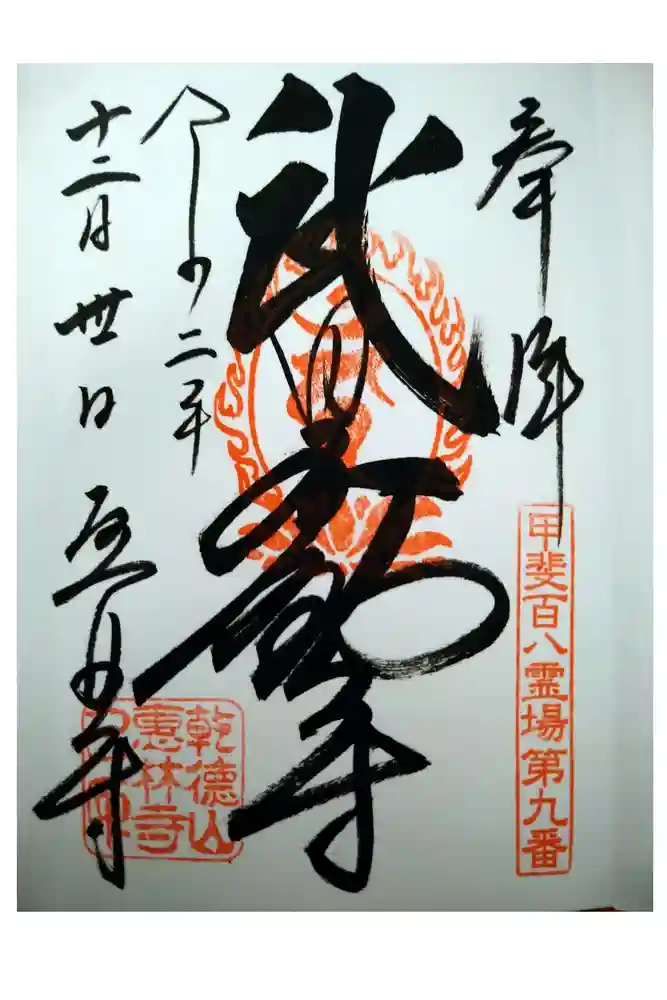 奉拝
甲斐百八霊場第九番
武田不動尊
令和二年
十二月丗日
恵林寺
乾徳山
惠林寺